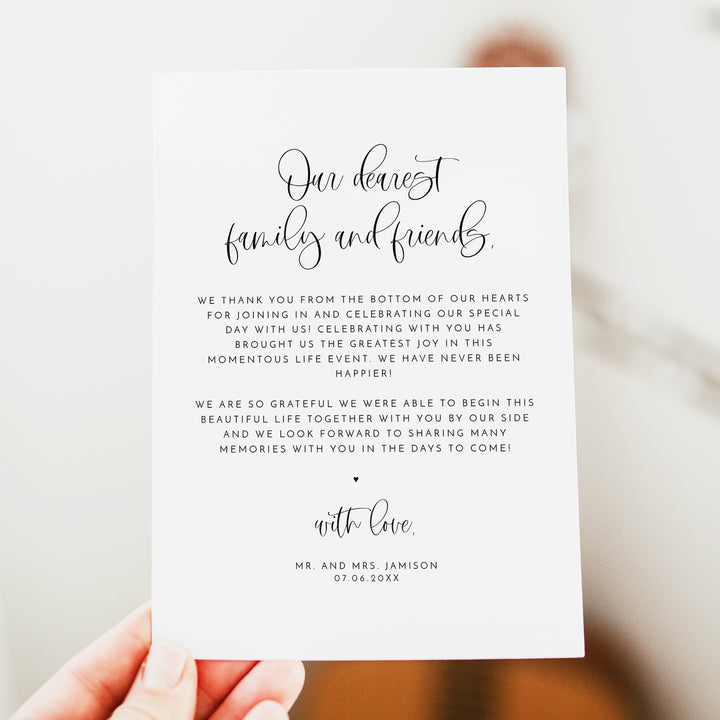 Our dearest
family and friends,
WE THANK YOU FROM THE BOTTOM OF OUR HEARTS
FOR JOINING IN AND CELEBRATING OUR SPECIAL
DAY WITH US! CELEBRATING WITH YOU HAS
BROUGHT US THE GREATEST JOY IN THIS
MOMENTOUS LIFE EVENT. WE HAVE NEVER BEEN
HAPPIER!
WE ARE SO GRATEFUL WE WERE ABLE TO BEGIN THIS
BEAUTIFUL LIFE TOGETHER WITH YOU BY OUR SIDE
AND WE LOOK FORWARD TO SHARING MANY
MEMORIES WITH YOU IN THE DAYS TO COME!
♥
with love,
MR. AND MRS. JAMISON
07.06.20XX